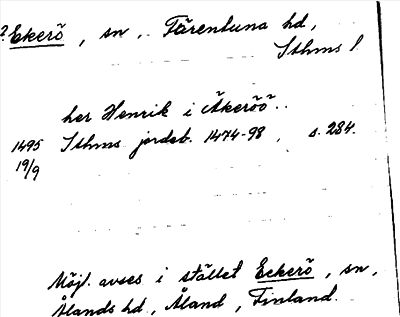 ? Ekerö, sn, Färentuna hd,
Sthms l
her Henrik i Åkeröö..
1495 Sthms jordeb. 1474-98, s. 284.
19/9
Möjl. avses i stället Eckerö, sn,
Ålands hd., Åland, Finland.